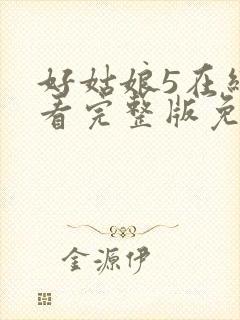 好姑娘5在
看完整版免
金源伊